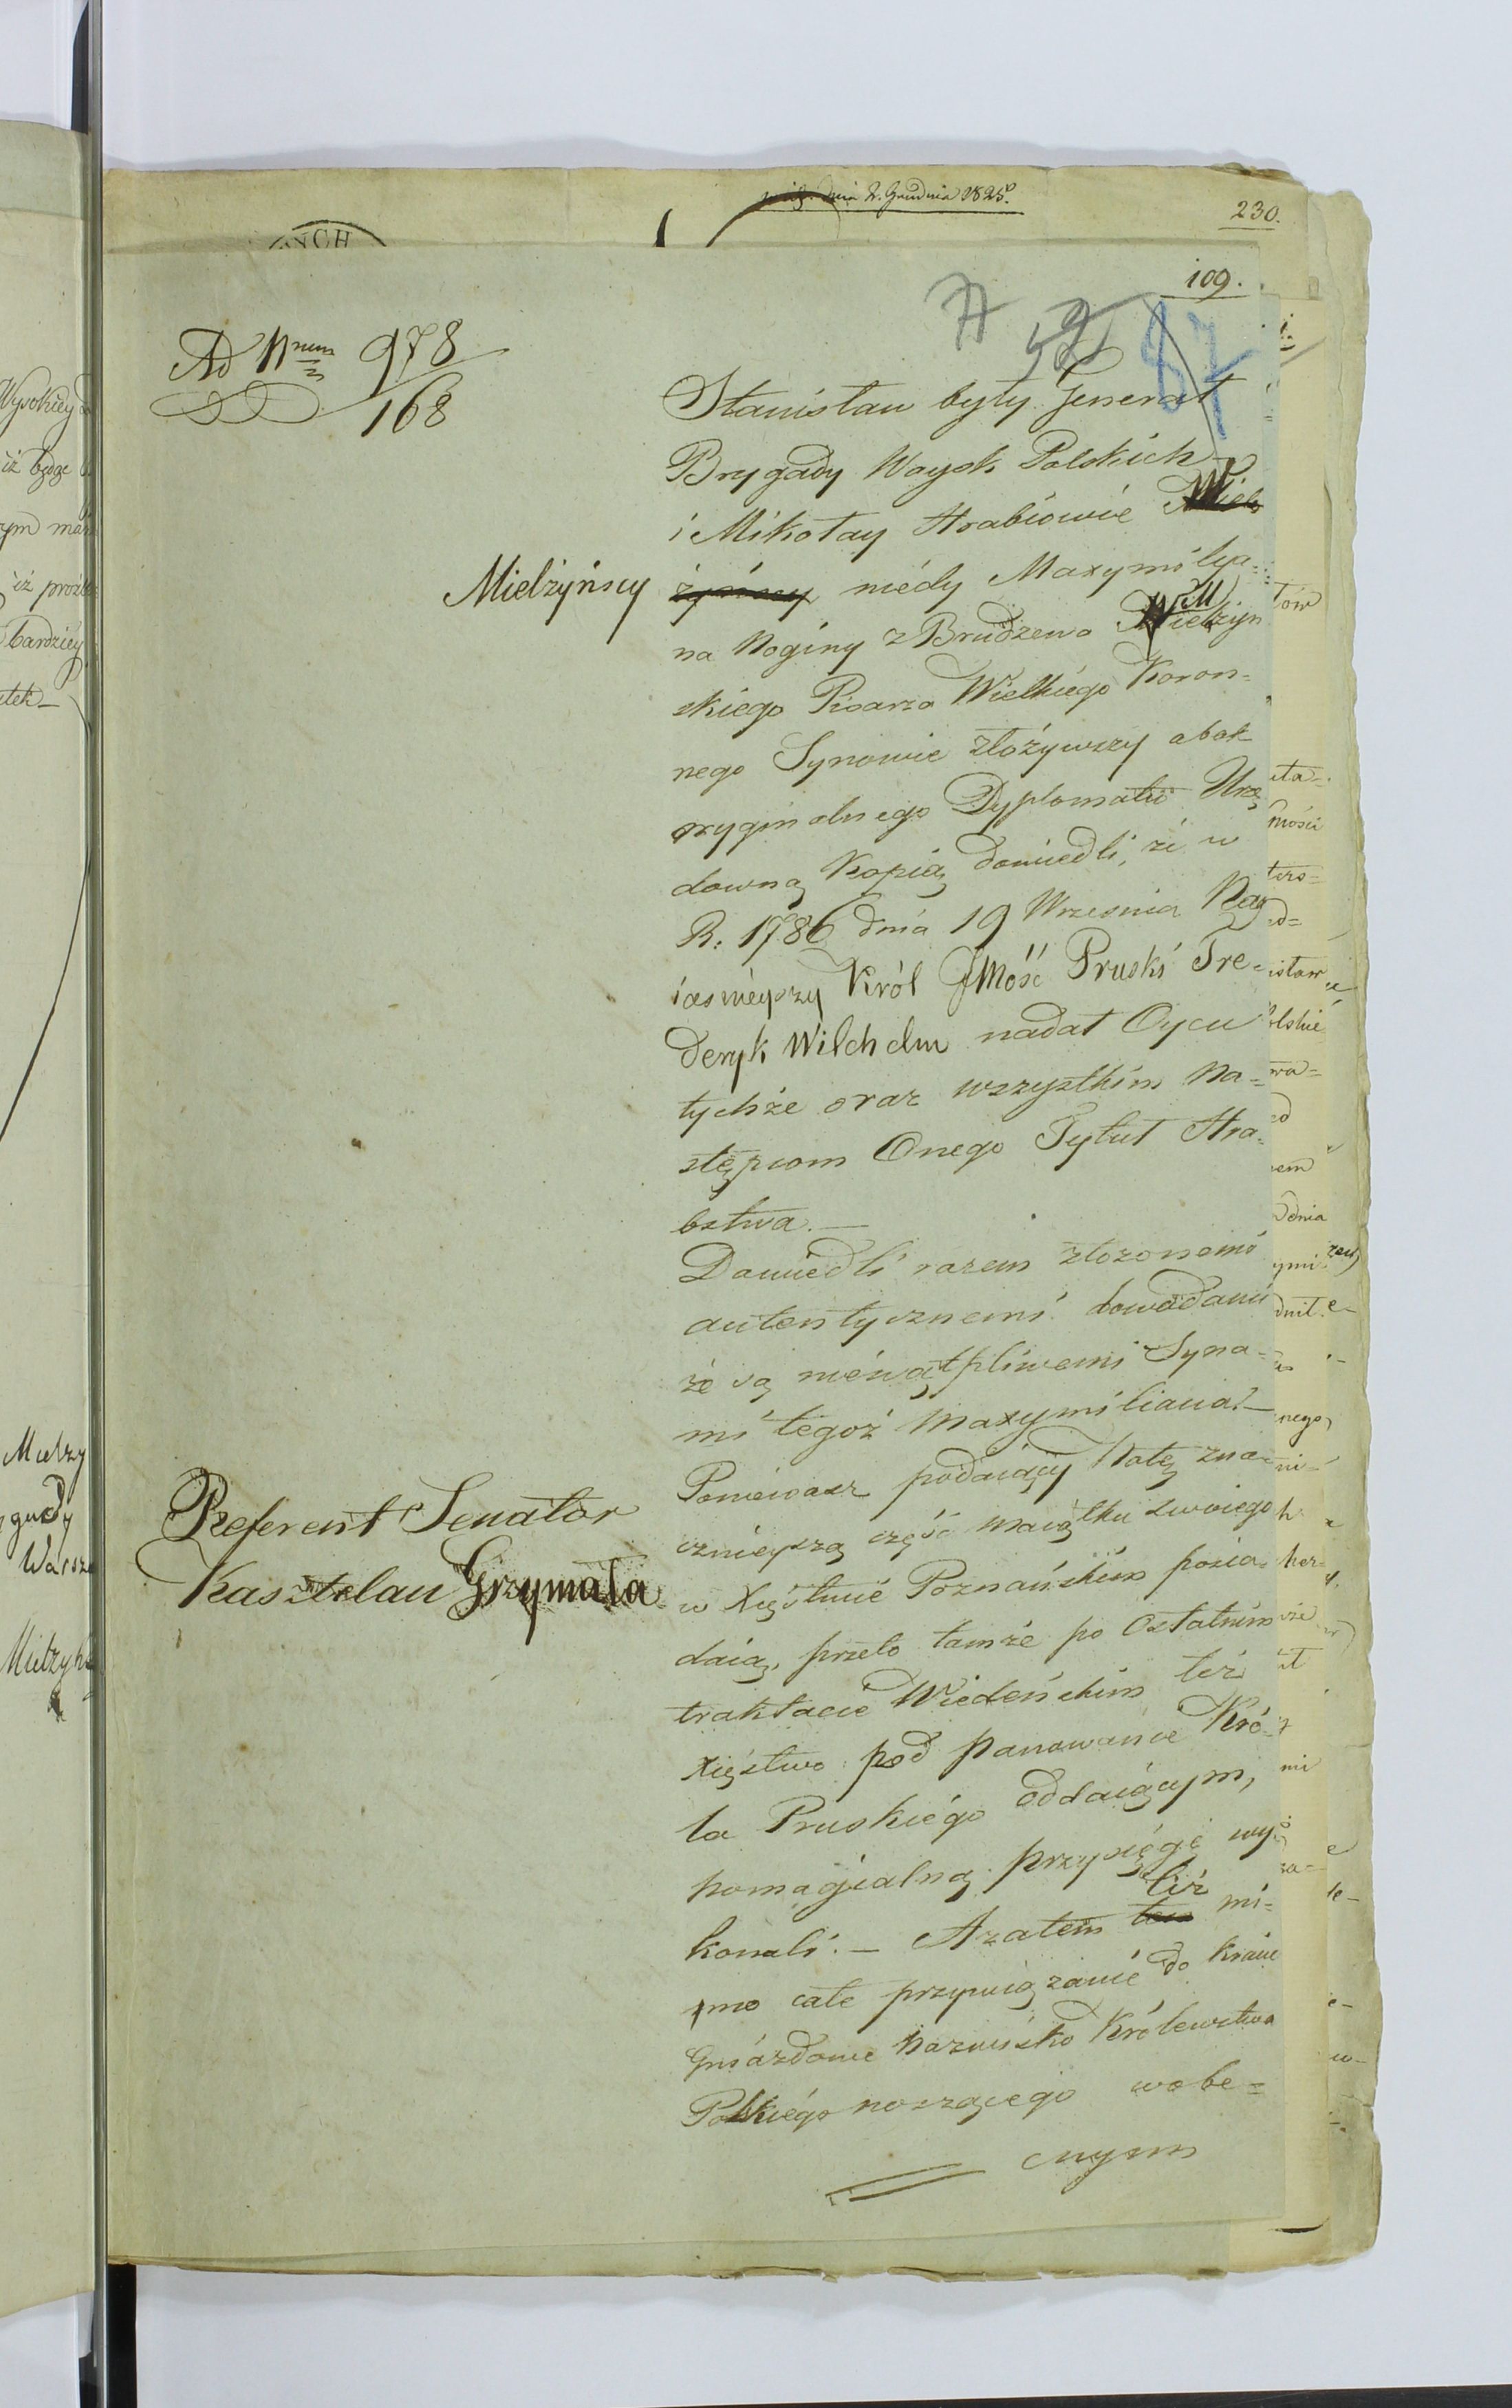 dnia 2. Grudnia 1825.
230.
YCH
109.
A
52
82
Ad Nrum 978
168
Stanisław były Jenerał
Brygady Woysk Polskich
i Mikołay Hrabiowie Miel
żyńscy niédy Maxymilya=
Mielżyńscy
na Noginy z Brudzewa Mielżyn
skiego Pisarza Wielkiego Koron=
nego Synowie złożywszy obok
oryginalnego Dyplomatu Urzę
downą Kopią dowiedli, że w
R: 1786 dnia 19 Wrzesnia Nay
iasnieyszy Król JMość Pruski Fre=
deryk Wilchelm nadał Oycu
tychże oraz wszystkim na=
stępcom Onego Tytuł Hra=
bstwa.—
Dowiedli razem złozonemi
autentycznemi dowodami
że są niéwątpliwemi Syna=
mi tegoż Maxymiliana.—
Ponieważ podaiący Notę zna=
cznieyszą część maiątku swoiego
w Xięstwie Poznańskim posia=
daią, przeto tamże po Ostatnim
traktacie Wiedeńskim też
Xięstwo pod panowanie Kró=
la Pruskiégo oddaiącym,
homagialną przysięgę wy=
konali.— A zatem ten też mi=
mo całe przywiązanie do kraiu
Gniazdowe nazwisko Królewstwa
Polskiégo noszącego wobe=
cnym
Referent Senator
Kasztelan Grzymała
Wysokiey
iż będąc
iż proźb
bardziéy
Mielzy
gady
Warsza
Mielzyń